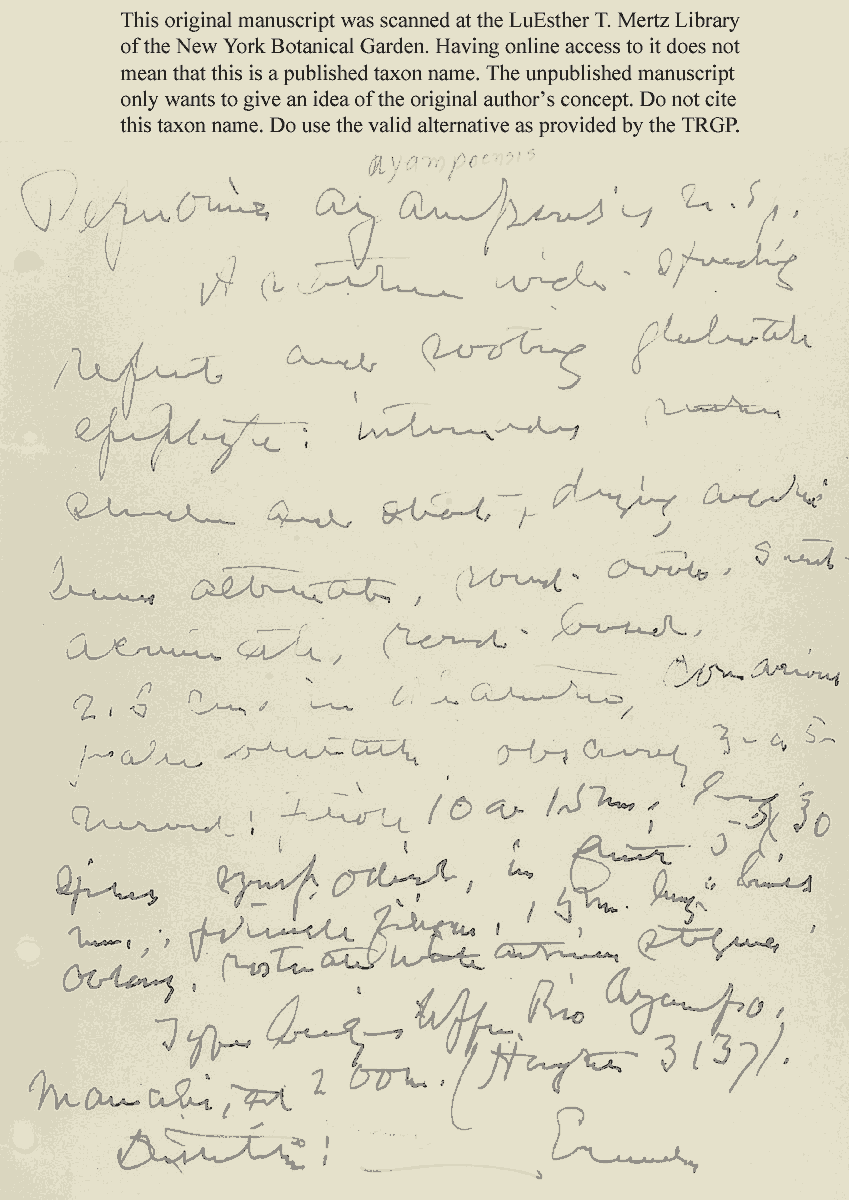 This original manuscript was scanned at the LuEsther T. Mertz Library
of the New York Botanical Garden. Having online access to it does not
mean that this is a published taxon name. The unpublished manuscript
only wants to give an idea of the original author's concept. Do not cite
this taxon name. Do use the valid alternative as provided by the TRGP.
ayampoensis
Peperomia ayampoensis n. sp.
A wide-spreading
and rooting glabrate
epiphyte; internodes
slender and short, drying
leaves alternate, round-ovate,
acuminate, round-based,
2.5 cm. in diameter,
palmately obscurely 3- or 5-
nerved; petiole 10 or 15 mm. long
spikes sympodial, in fruit 5 x 30
mm.; peduncle filiform, 15 mm. long; berries
oblong, rostrate stigma
Type Upper Rio Ayampo,
Manabi, at 200 m. (Haught 3137).
Ecuador